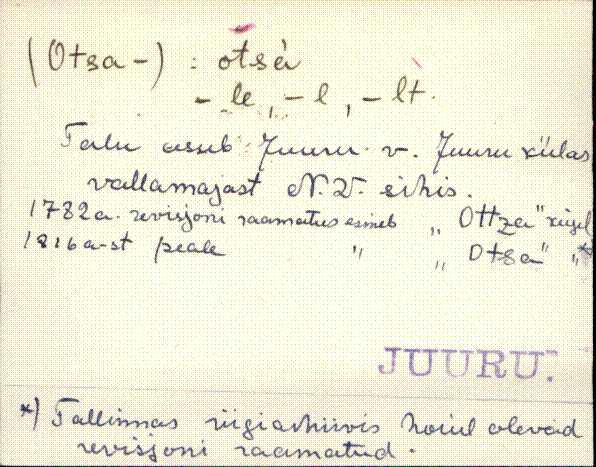 (Otsa-) : otsa
-le, -l, -lt.
Talu asub Juuru v. Juuru külas
vallamajast N.V. sihis.
1782a. revisjoni raamatus esineb „Ottza" kujul
1816a-st peale " „Otsa" „*
JUURU.
*) Tallinnas riigiarhiivis hoiul olevad
revisjoni raamatud.